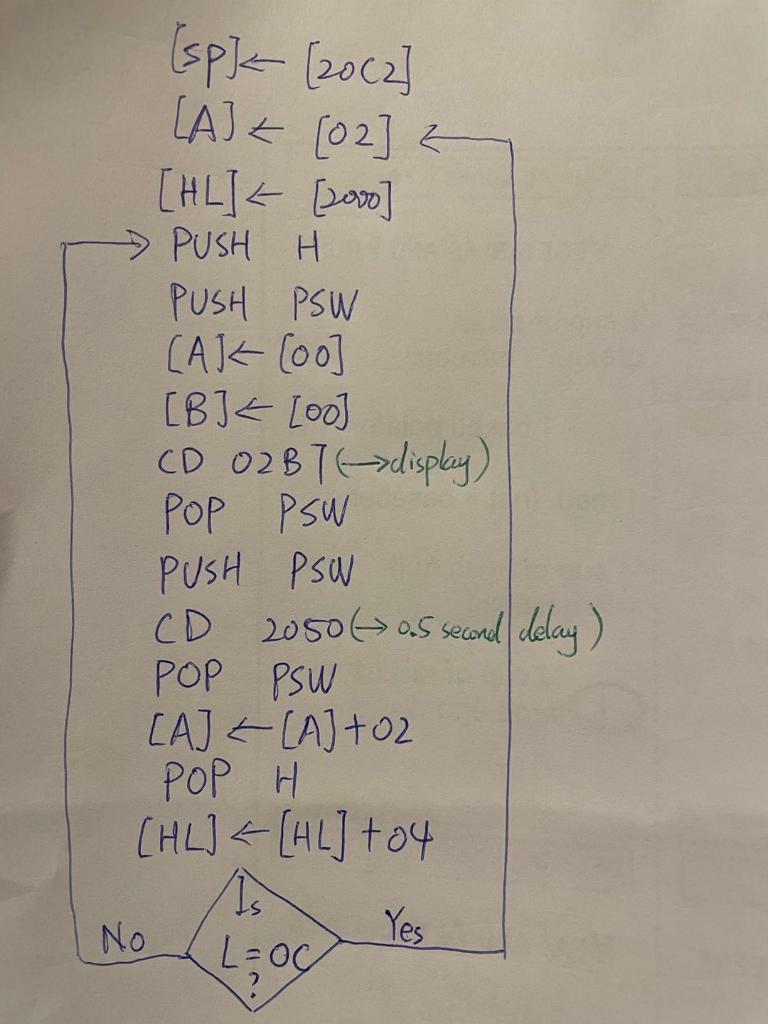 [SP]← [20C2]
[A] ← [02]
[HL]← [2000]
PUSH H
PUSH PSW
[A]← [00]
[B]← [00]
CD 02B7 (→display)
POP PSW
PUSH PSW
CD 2050 (→ 0.5 second delay)
POP PSW
[A] ← [A]+02
POP H
[HL] ← [HL] +04
Is
L=0C
?
No
Yes